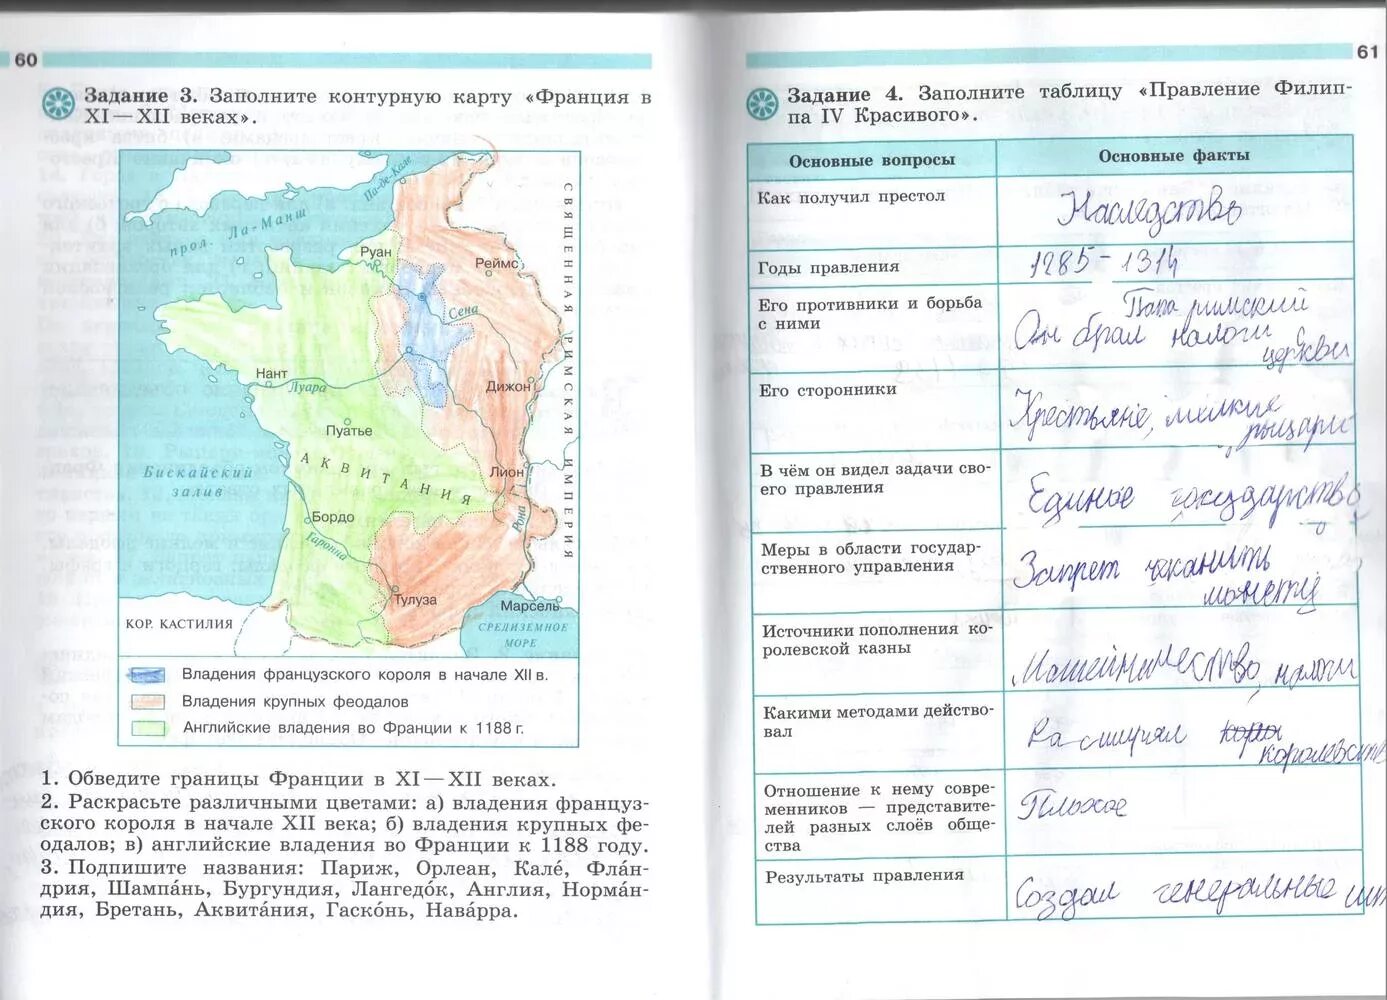 60
Задание 3. Заполните контурную карту «Франция в
XI—XII веках».
Па-де-Кале
прол. Ла-Манш
СВЯЩЕННАЯ РИМСКАЯ ИМПЕРИЯ
Руан
Реймс
Сена
Нант
Луара
Дижон
Пуатье
АКВИТАНИЯ
Бискайский
залив
Лион
Бордо
Рона
Гаронна
Тулуза
Марсель
КОР. КАСТИЛИЯ
СРЕДИЗЕМНОЕ
МОРЕ
Владения французского короля в начале XII в.
Владения крупных феодалов
Английские владения во Франции к 1188 г.
1. Обведите границы Франции в XI—XII веках.
2. Раскрасьте различными цветами: а) владения француз-
ского короля в начале XII века; б) владения крупных фе-
одалов; в) английские владения во Франции к 1188 году.
3. Подпишите названия: Париж, Орлеан, Кале́, Фла́н-
дрия, Шампа́нь, Бургундия, Лангедо́к, Англия, Норма́н-
дия, Бретань, Аквита́ния, Гаско́нь, Нава́рра.
61
Задание 4. Заполните таблицу «Правление Филип-
па IV Красивого».
Основные вопросы
Основные факты
Как получил престол
Наследство
Годы правления
1285-1314
Его противники и борьба
с ними
Папа римский
Он брал налоги с
церкви
Его сторонники
Крестьяне, мелкие
рыцари
В чём он видел задачи сво-
его правления
Единое государство
Меры в области государ-
ственного управления
Запрет чеканить
монету
Источники пополнения ко-
ролевской казны
Мошенничество, налоги
Какими методами действо-
вал
Расширял
королевств
Отношение к нему совре-
менников — представите-
лей разных слоёв обще-
ства
Плохое
Результаты правления
Создал генеральные шт